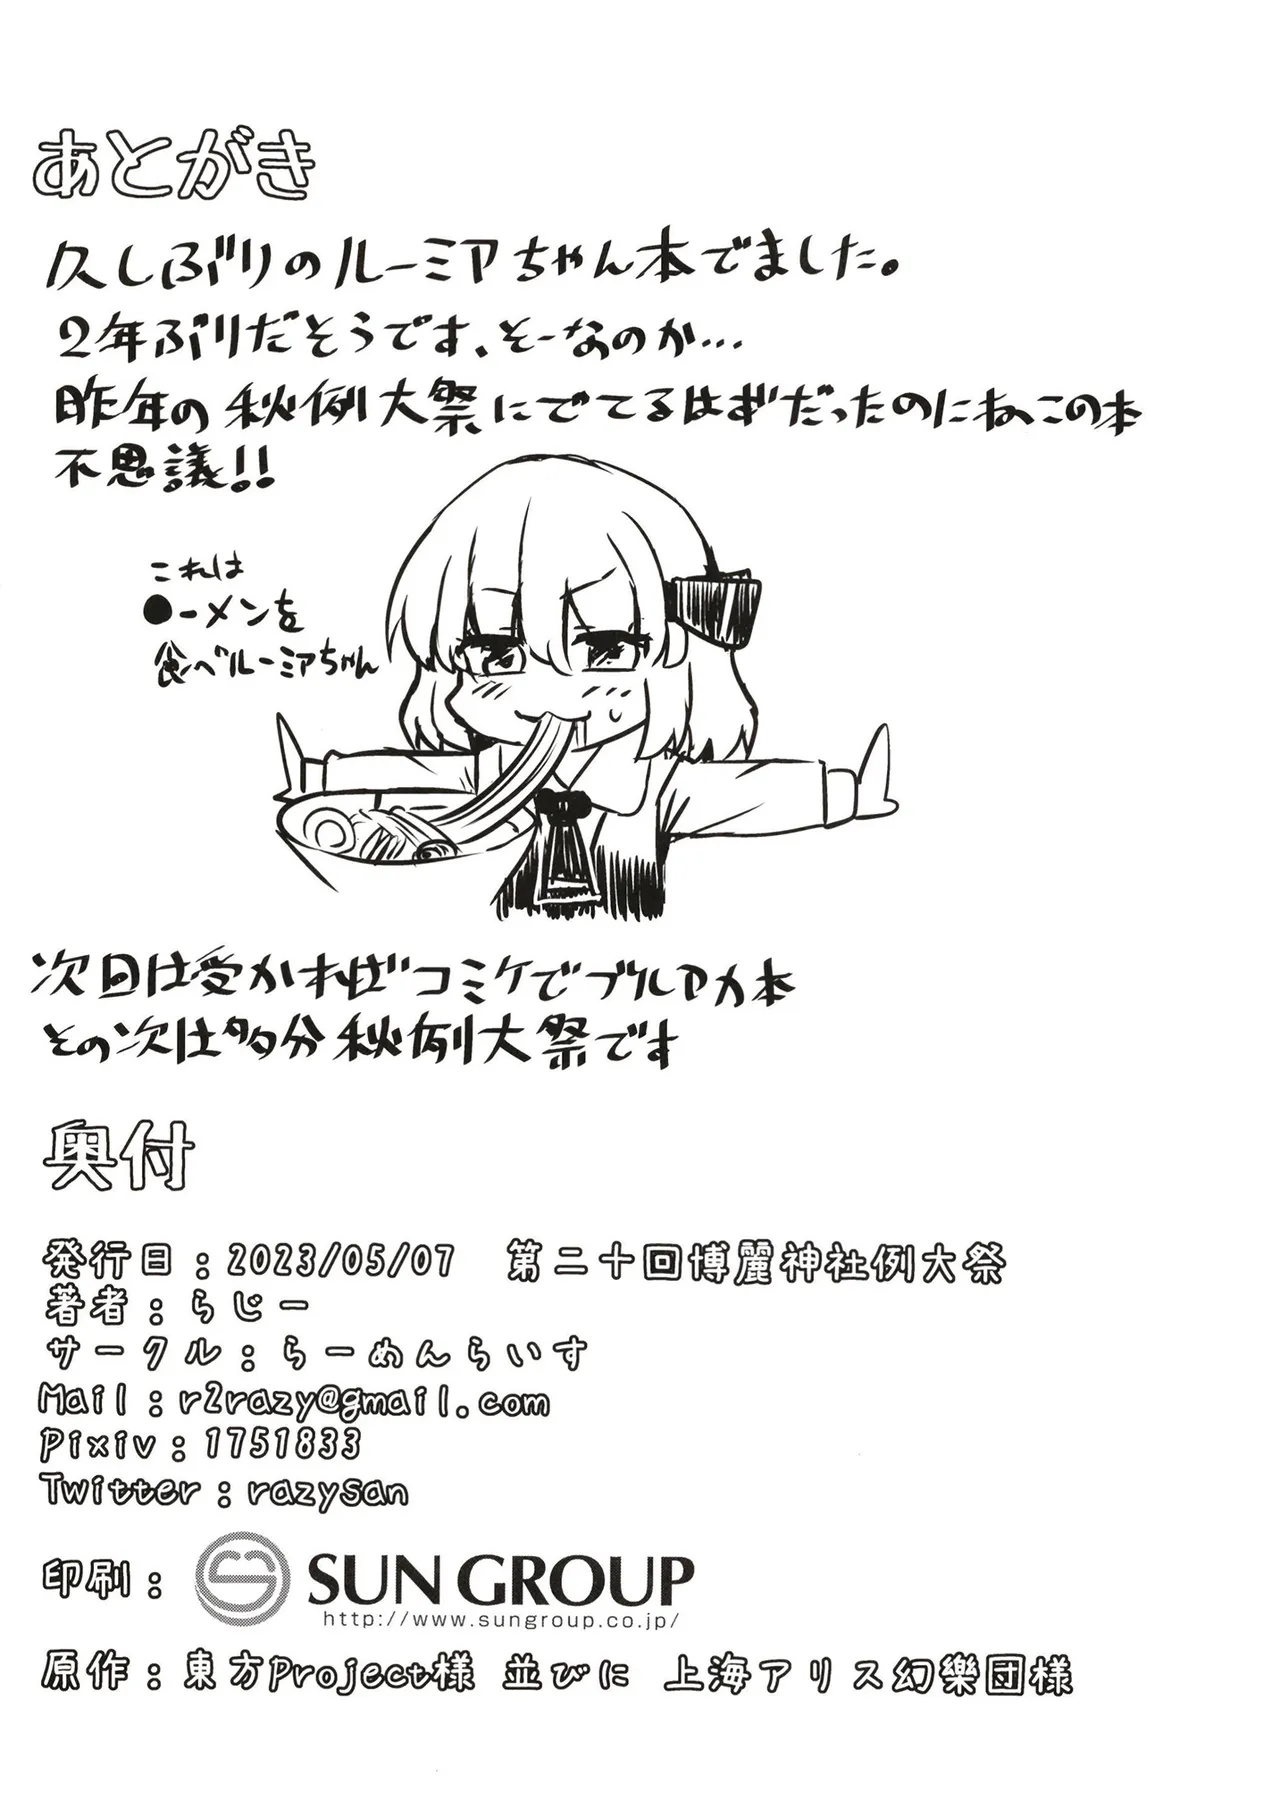 あとがき
久しぶりのルーミアちゃん本でました。
2年ぶりだそうです、そーなのか…
昨年の秋例大祭にでてるはずだったのにねこの本
不思議!!
これは
●ーメンを
食べルーミアちゃん
次回は受かればコミケでブルアカ本
その次は多分秋例大祭です
奥付
発行日：2023/05/07 第二十回博麗神社例大祭
著者：らじー
サークル：らーめんらいす
Mail：r2razy@gmail.com
Pixiv：1751833
Twitter：razysan
印刷： SUN GROUP
http://www.sungroup.co.jp/
原作：東方Project様 並びに 上海アリス幻樂団様